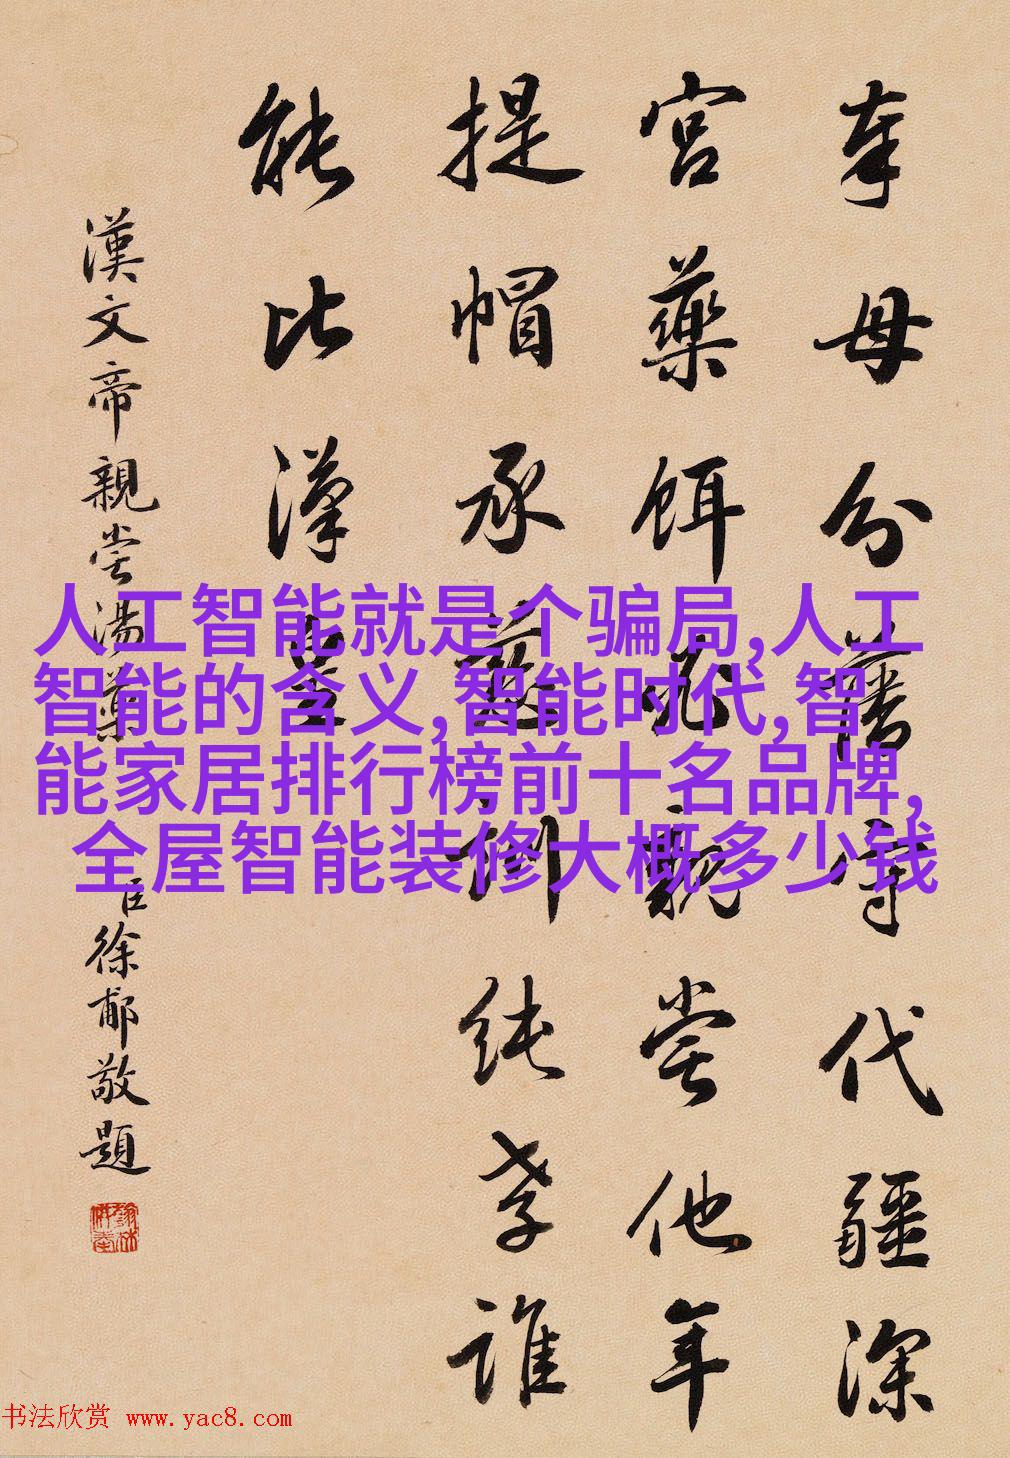 奉母分藩守代疆深
宮藥餌必親嘗他年
提帽承慈訓純孝誰
能比漢皇
漢文帝親嘗湯藥
臣徐郙敬題
人工智能就是个骗局,人工
智能的含义,智能时代,智
能家居排行榜前十名品牌,
全屋智能装修大概多少钱
书法欣赏 www.yac8.com